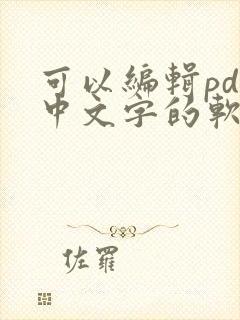 可以編輯pd
中文字的軟
佐羅